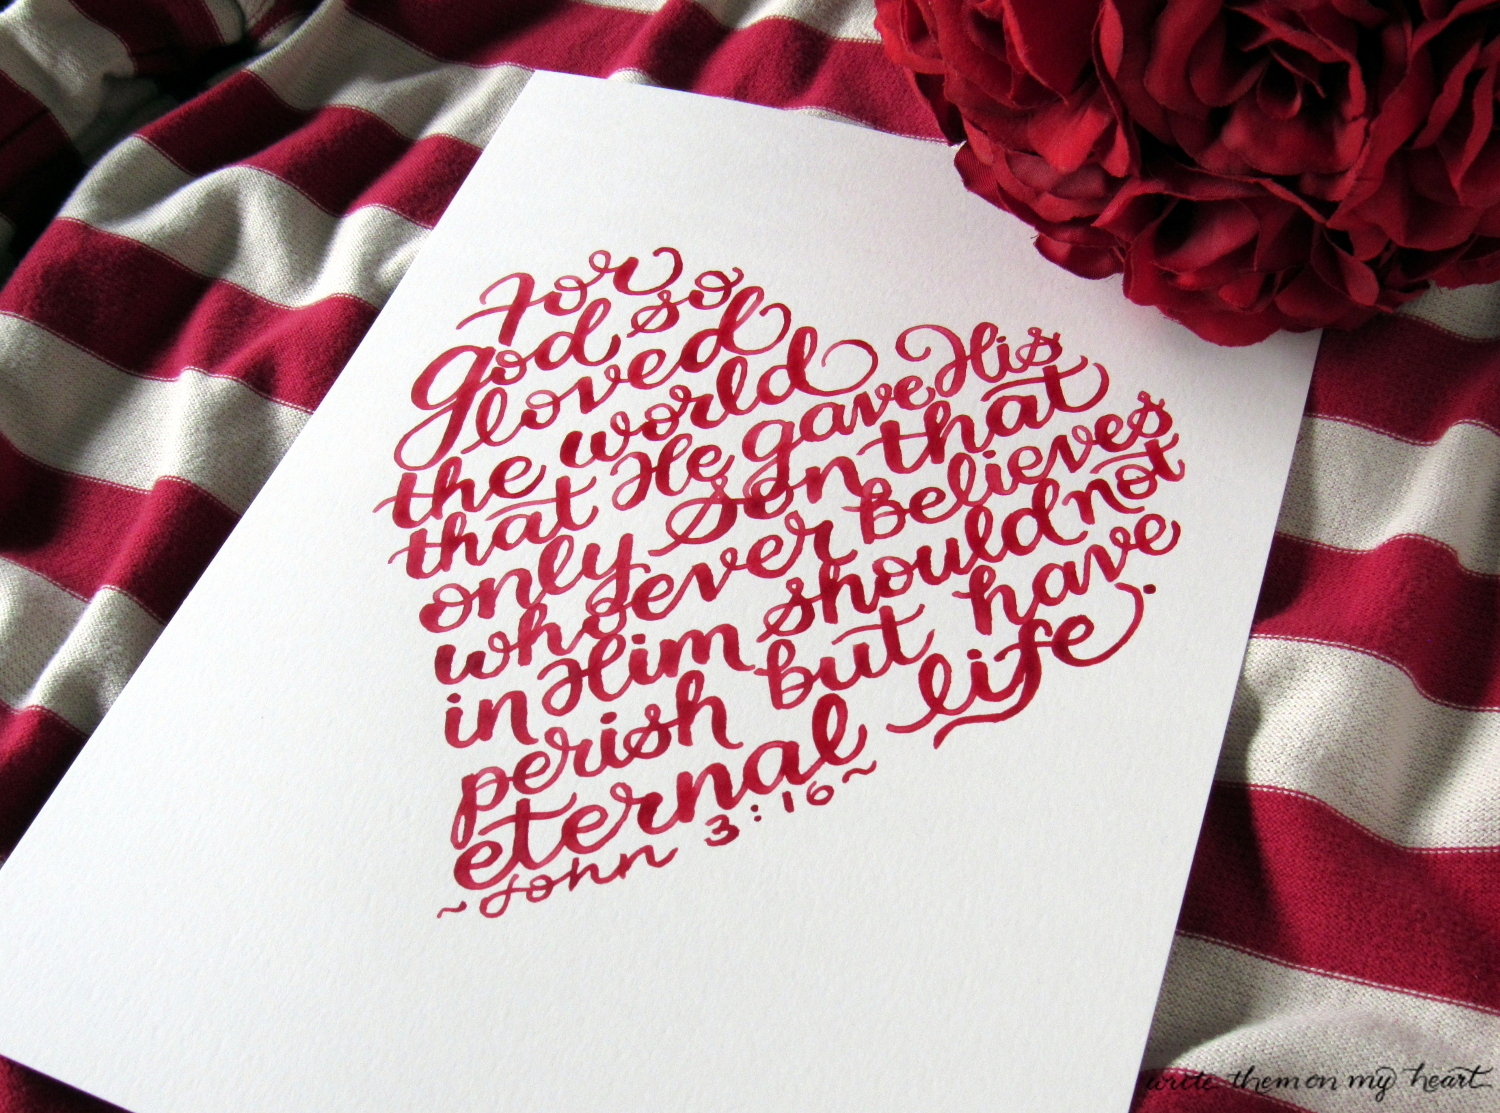 For
God so
loved
the world
that He gave His
only Son that
whoever believes
in Him should not
perish but have
eternal life.
~John 3:16~
write them on my heart